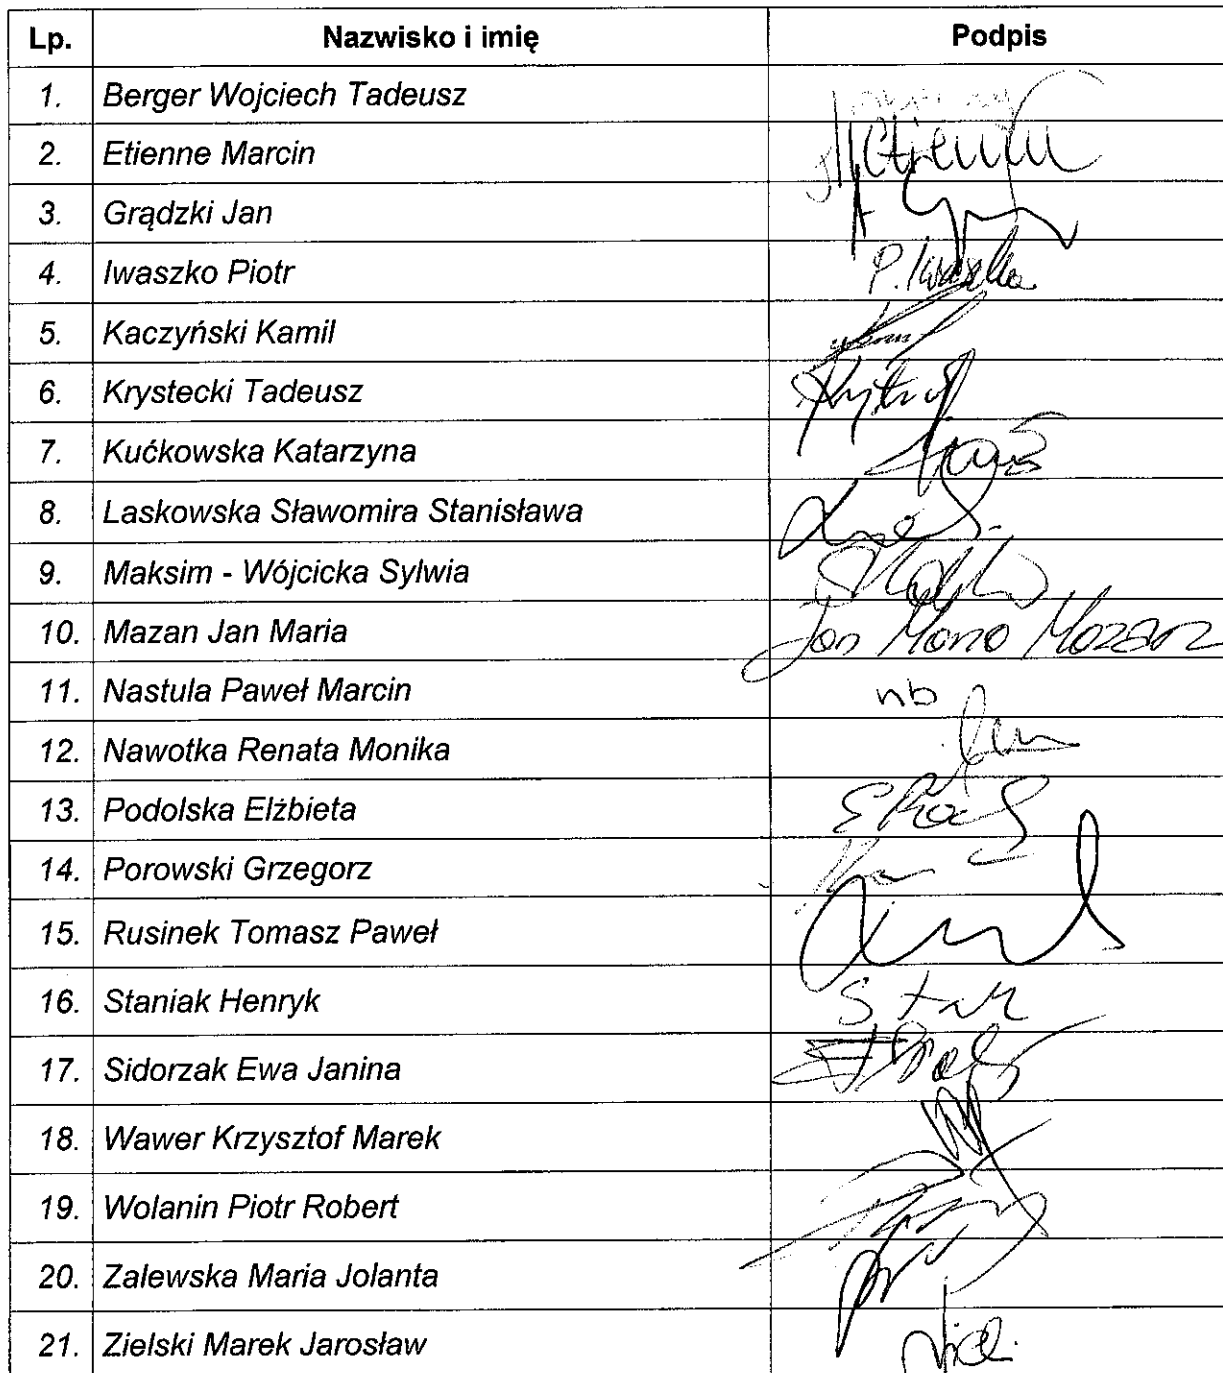 Lp. Nazwisko i imię Podpis
1. Berger Wojciech Tadeusz
2. Etienne Marcin MEtienne
3. Grądzki Jan
4. Iwaszko Piotr P. Iwaszko
5. Kaczyński Kamil
6. Krystecki Tadeusz
7. Kućkowska Katarzyna
8. Laskowska Sławomira Stanisława
9. Maksim - Wójcicka Sylwia
10. Mazan Jan Maria Jan Maria Mazan
11. Nastula Paweł Marcin nb
12. Nawotka Renata Monika
13. Podolska Elżbieta
14. Porowski Grzegorz
15. Rusinek Tomasz Paweł
16. Staniak Henryk
17. Sidorzak Ewa Janina
18. Wawer Krzysztof Marek
19. Wolanin Piotr Robert
20. Zalewska Maria Jolanta
21. Zielski Marek Jarosław